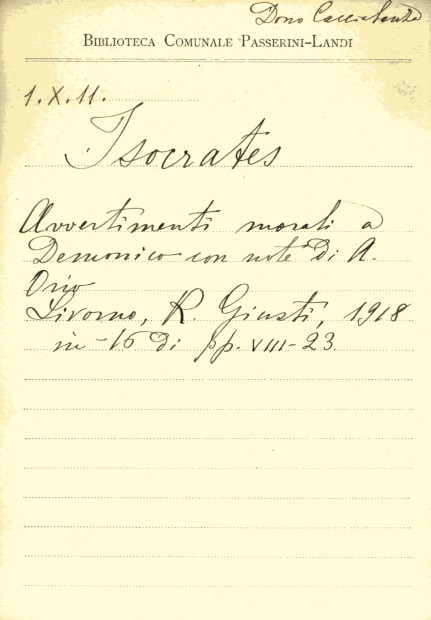 Dono
BIBLIOTECA COMUNALE PASSERINI-LANDI
1.X.11.
Isocrates
Avvertimenti morali a
Demonico con note di A.
Livorno, R. Giusti, 1918
in-16 di pp. VIII-23.